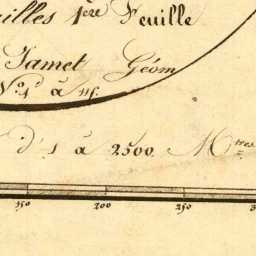 illes 1ère Feuille
Jamet Géom
Nos 1 à
d' 1 à 2500 Mtres
150 200 250